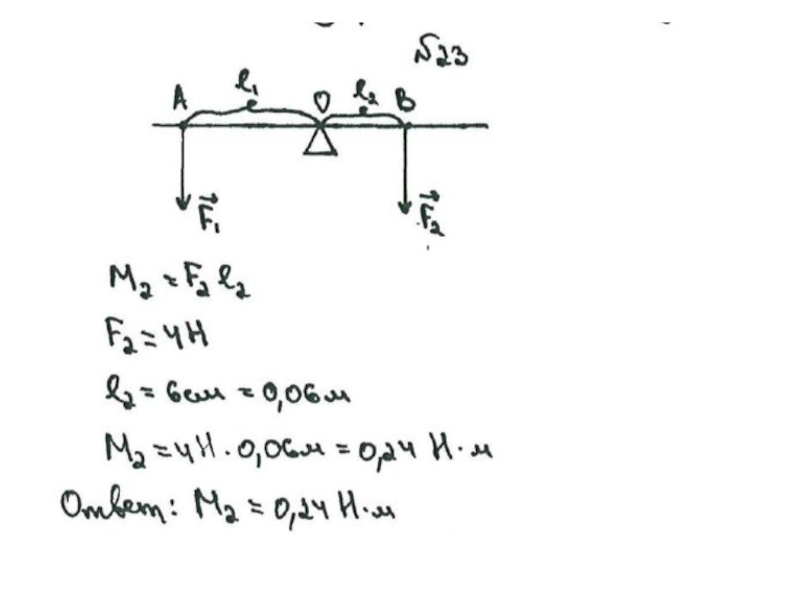 №23
A l₁ O l₂ B
F⃗₁ F⃗₂
M₂ = F₂ l₂
F₂ = 4Н
l₂ = 6см = 0,06м
M₂ = 4Н · 0,06м = 0,24 Н·м
Ответ: M₂ = 0,24 Н·м